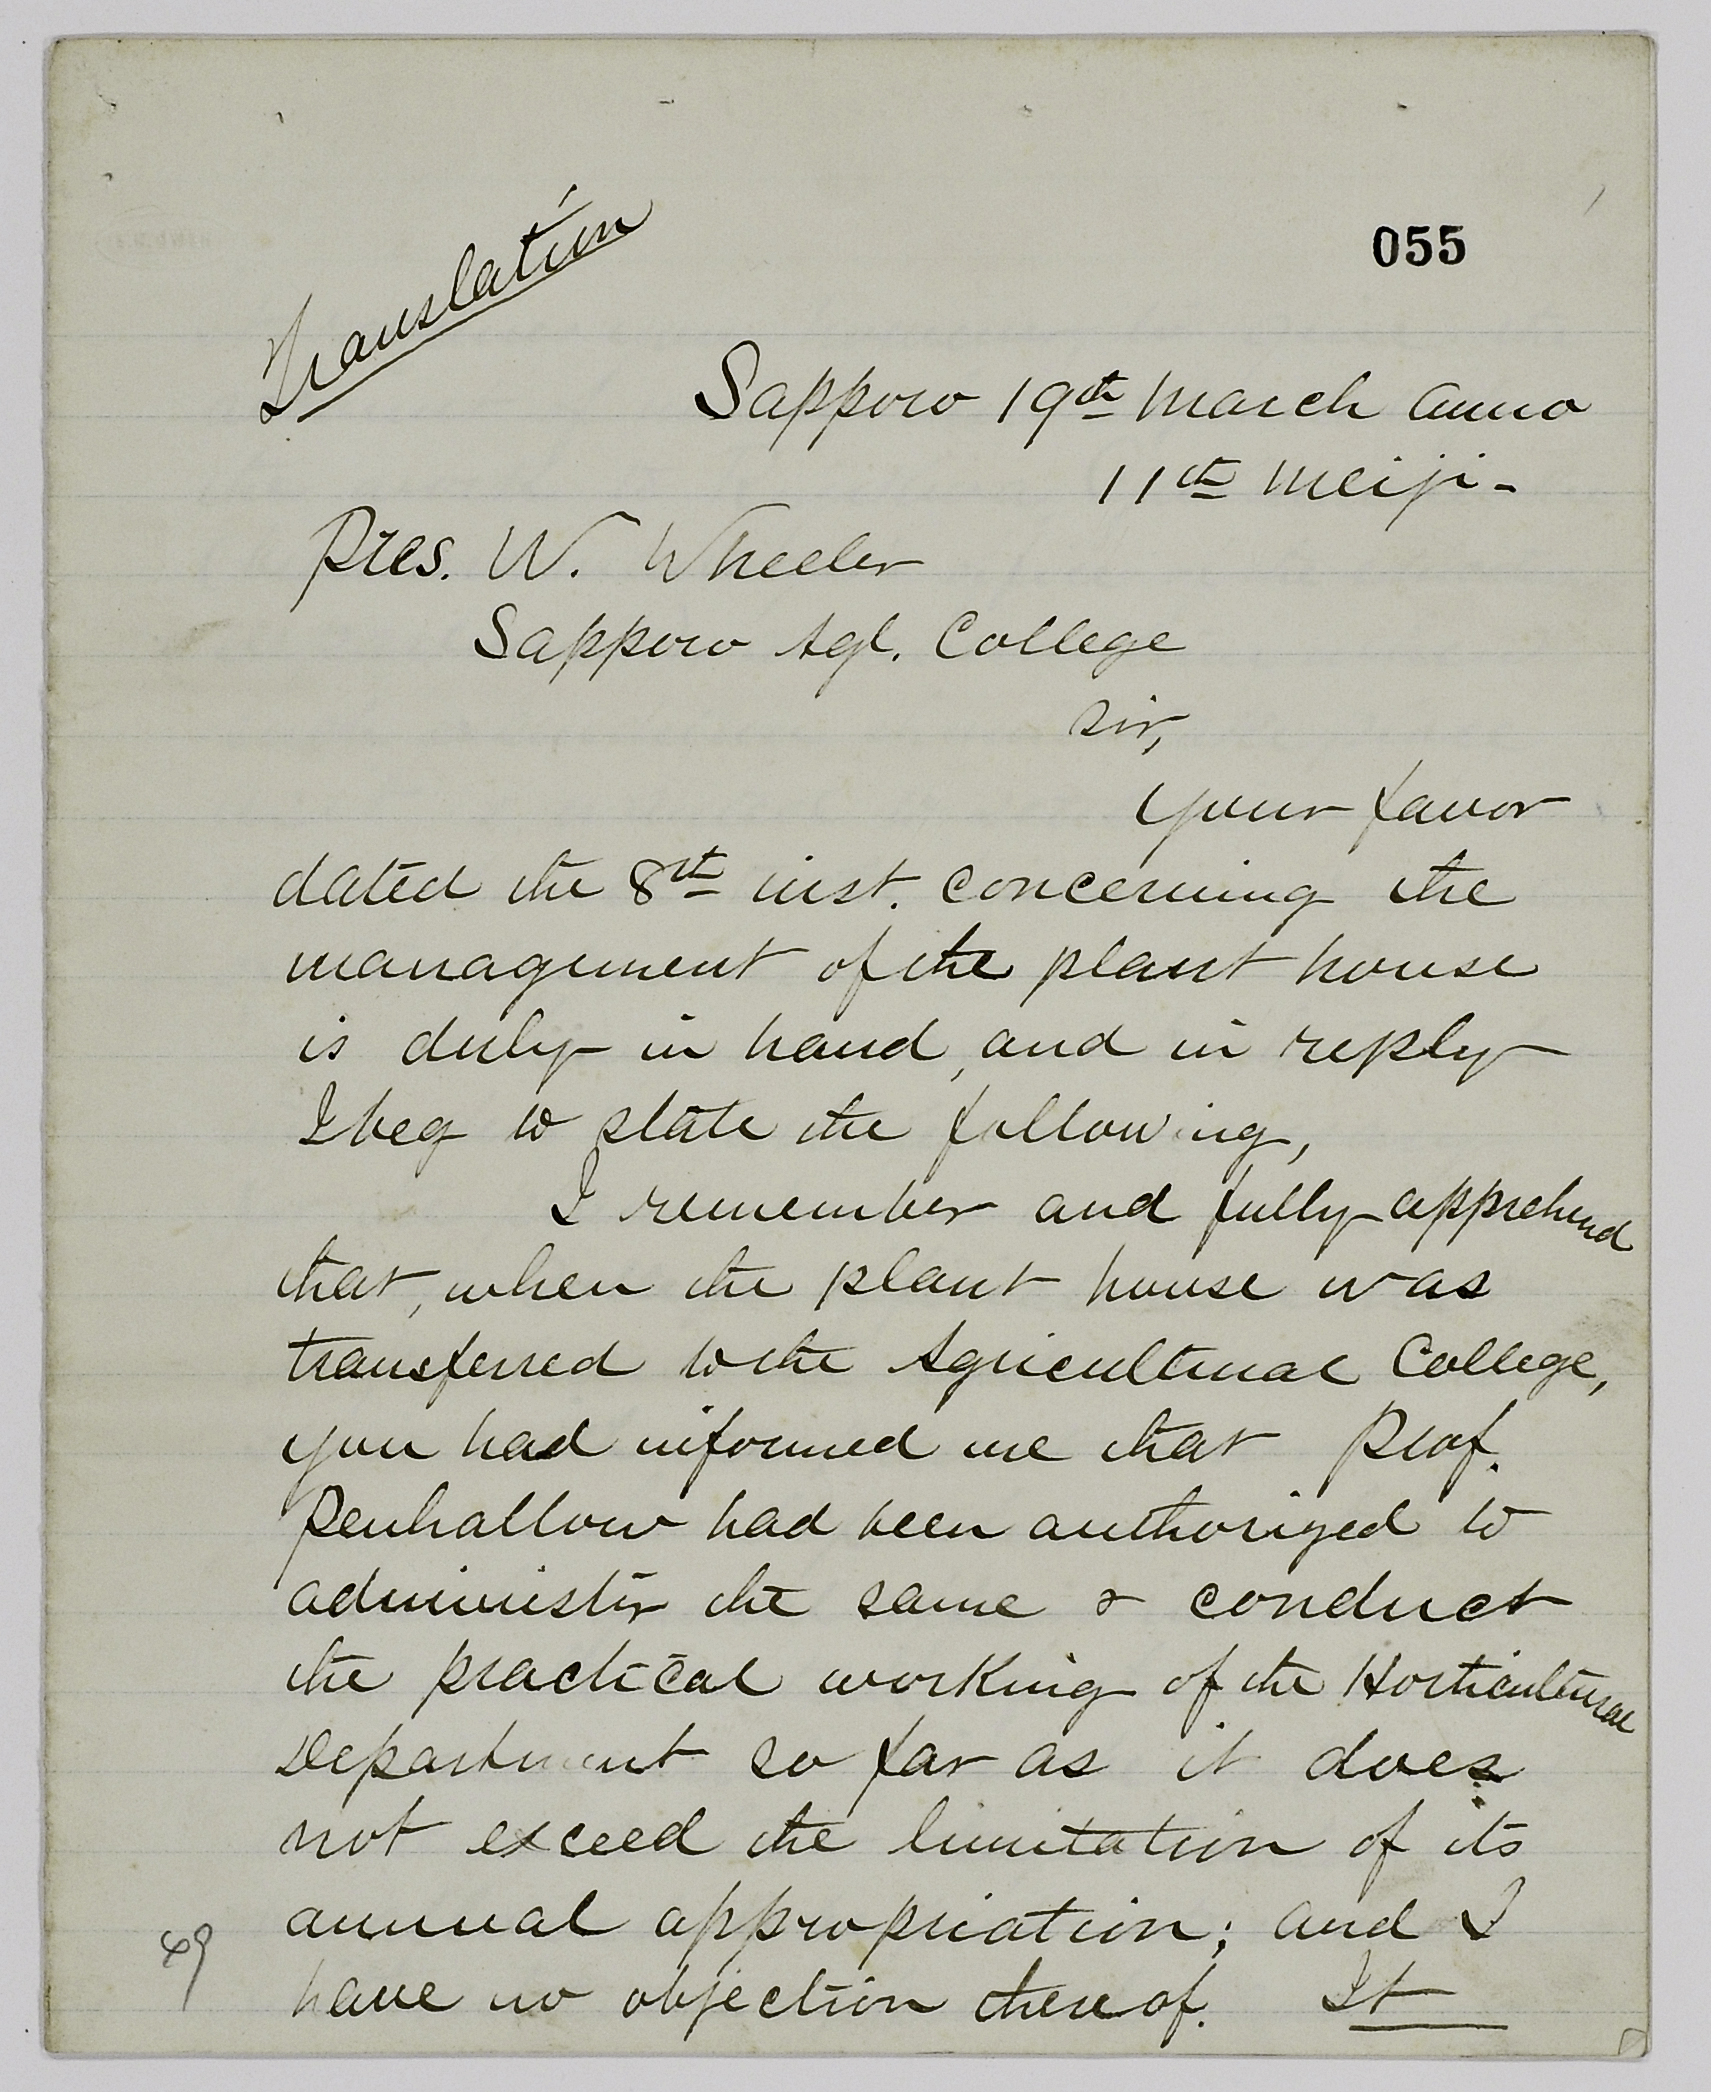 Translation
055
Sapporo 19th March anno
11th Meiji-
Pres. W. Wheeler
Sapporo Agl. College
Sir,
Your favor
dated the 8th inst. concerning the
management of the plant house
is duly in hand, and in reply
I beg to state the following,
I remember and fully apprehend
that, when the plant house was
transferred to the Agricultural College,
you had informed me that Prof.
Penhallow had been authorized to
administer the same & conduct
the practical working of the Horticultural
Department so far as it does
not exceed the limitation of its
annual appropriation; and I
have no objection thereof. It
49